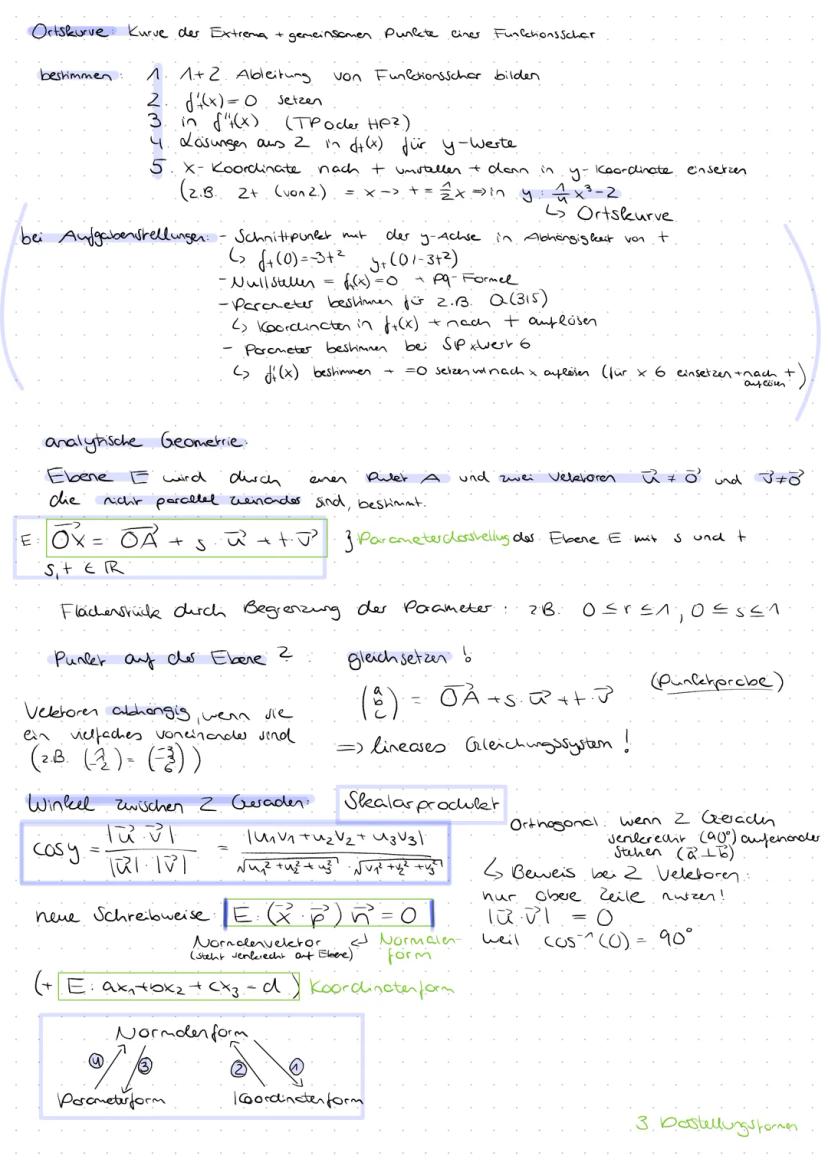 Ortskurve: Kurve der Extrema + gemeinsamen Punkte einer Funktionsschar
bestimmen: 1. 1+2. Ableitung von Funktionsschar bilden
2. f't(x) = 0 setzen
3. in f''t(x) (TP oder HP?)
4. Lösungen aus 2 in ft(x) für y-Werte
5. x-Koordinate nach t umstellen + dann in y-Koordinate einsetzen
(z.B. 2t (von 2.) = x -> t = ½x => in y: ¼x³-2
↳ Ortskurve
bei Aufgabenstellungen: - Schnittpunkt mit der y-Achse in Abhängigkeit von t
↳ ft(0)=-3t² yt(0|-3t²)
- Nullstellen = ft(x)=0 → pq-Formel
- Parameter bestimmen für z.B. Q(3|5)
↳ Koordinaten in ft(x) + nach t auflösen
- Parameter bestimmen bei SP xWert 6
↳ f't(x) bestimmen → =0 setzen und nach x auflösen (für x 6 einsetzen + nach t auflösen)
analytische Geometrie:
Ebene E wird durch einen Punkt A und zwei Vektoren u⃗ ≠ o⃗ und v⃗ ≠ o⃗
die nicht parallel zueinander sind, bestimmt.
E: OX⃗ = OA⃗ + s · u⃗ + t · v⃗ } Parameterdarstellung der Ebene E mit s und t
s, t ∈ ℝ
Flächenstück durch Begrenzung der Parameter: z.B. 0 ≤ r ≤ 1, 0 ≤ s ≤ 1
Punkt auf der Ebene? : gleichsetzen!
(a b c) = OA⃗ + s · u⃗ + t · v⃗ (Punktprobe)
=> lineares Gleichungssystem!
Vektoren abhängig, wenn sie
ein vielfaches voneinander sind
(z.B. (1 -1 -2) = (-3 3 6))
Winkel zwischen 2 Geraden: Skalarprodukt
cos γ = |u⃗ · v⃗| / |u⃗| · |v⃗| = |u₁v₁ + u₂v₂ + u₃v₃| / √u₁² + u₂² + u₃² · √v₁² + v₂² + v₃²
Orthogonal: wenn 2 Geraden
senkrecht (90°) aufeinander
stehen (a⃗ ⊥ b⃗)
↳ Beweis bei 2 Vektoren:
nur obere Zeile nutzen!
|u⃗ · v⃗| = 0
weil cos⁻¹(0) = 90°
neue Schreibweise: E: (x⃗ · p⃗) n⃗ = 0
Normalenvektor ↲ Normalenform
(steht senkrecht auf Ebene)
(+ E: ax₁+bx₂ + cx₃ - d) Koordinatenform
Normalenform
4 3 2 1
Parameterform Koordinatenform
3 Darstellungsformen